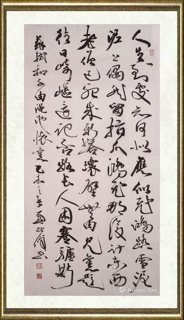 人生到處知何似應似飛鴻踏雪泥
泥上偶然留指爪鴻飛那復計東西
老僧已死成新塔壞壁無由見舊題
往日崎嶇還記否路長人困蹇驢嘶
蘇軾和子由澠池懷舊